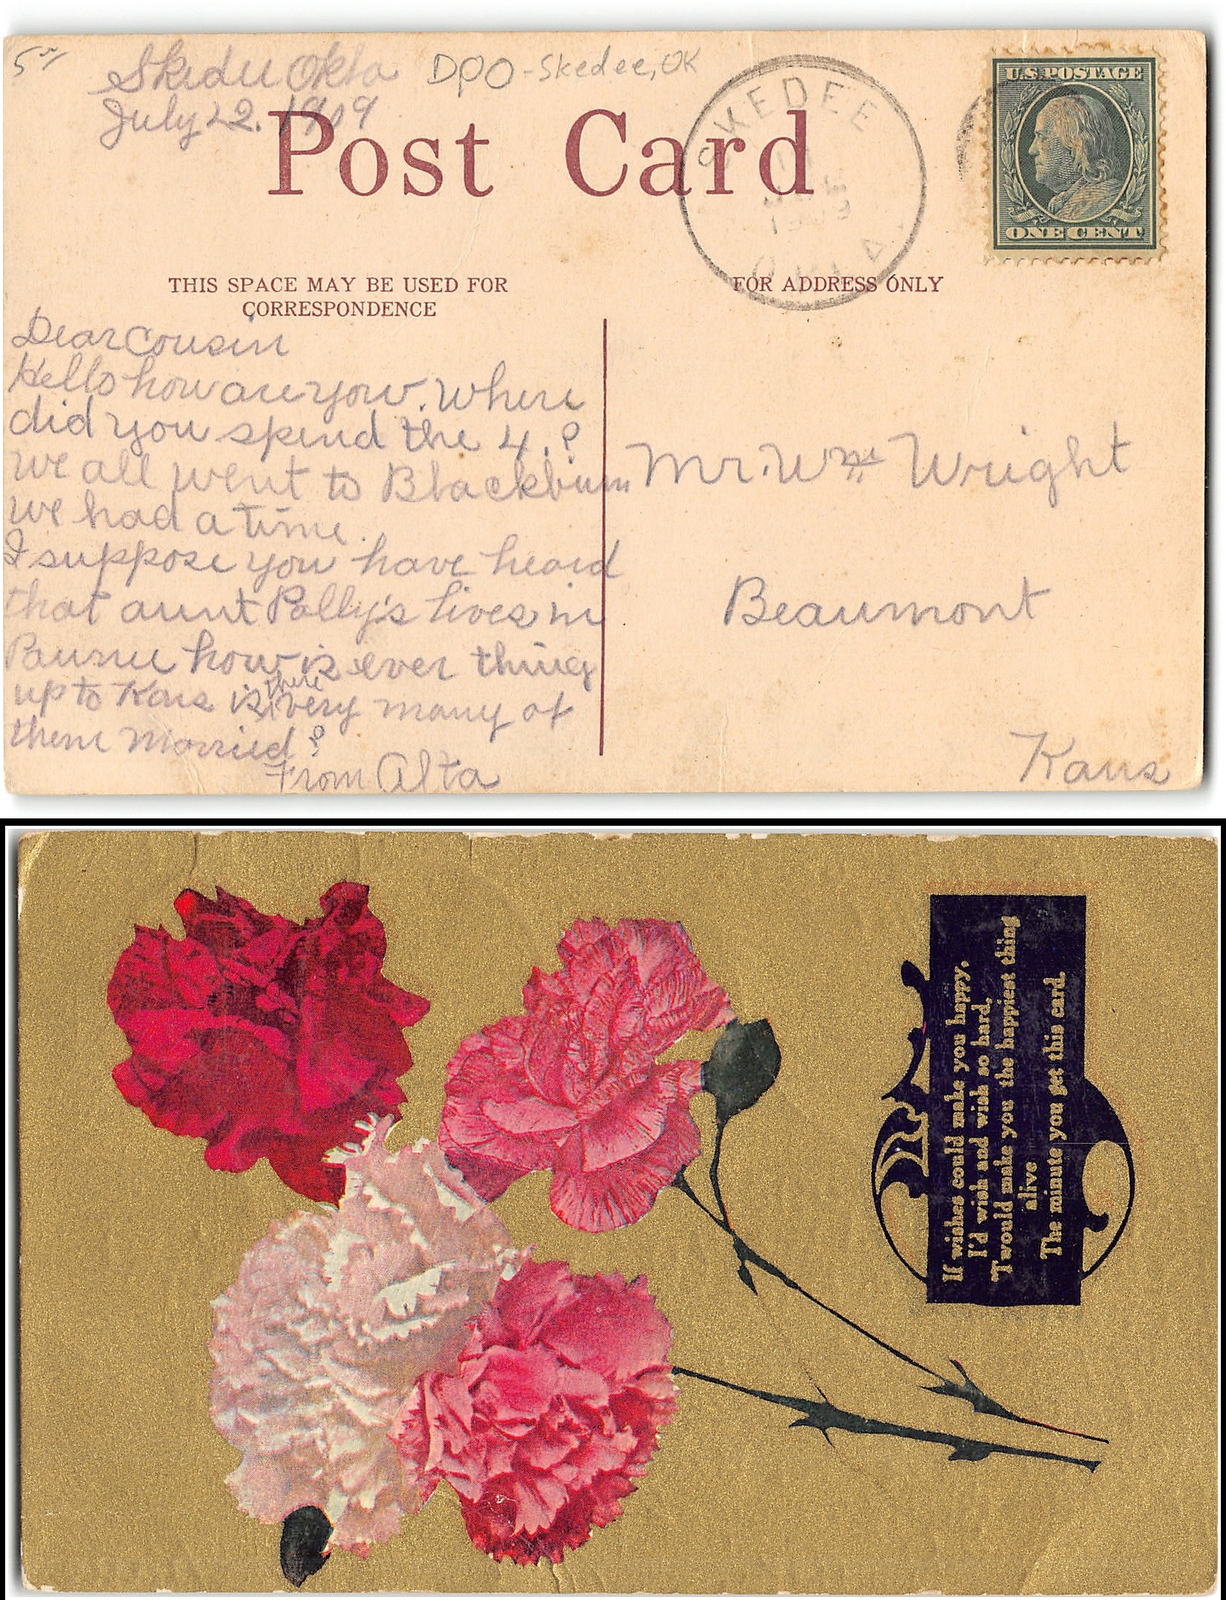 5
Skedee Okla
DPO - Skedee, OK
July 22. 1909
Post Card
SKEDEE
1909
OKLA
U.S. POSTAGE
ONE CENT
THIS SPACE MAY BE USED FOR
CORRESPONDENCE
FOR ADDRESS ONLY
Dear Cousin
Hello how are you. Where
did you spend the 4.?
we all went to Blackburn
we had a time.
I suppose you have heard
that aunt Polly's lives in
Pawnee how is ever thing
up to Kans is there very many of
them Married?
From Alta
Mr. Wm Wright
Beaumont
Kans
If wishes could make you happy,
I'd wish and wish so hard,
'Twould make you the happiest thing
alive
The minute you get this card.